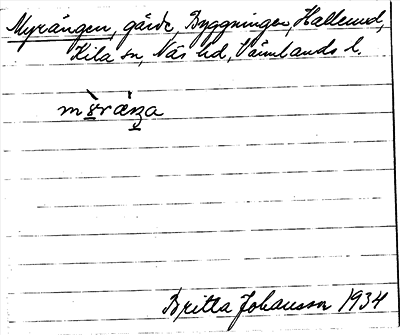 Myrängen, gärde, Byggningen, Hallerud,
Kila sn, Näs hd, Värmlands l.
Britta Johansson 1934